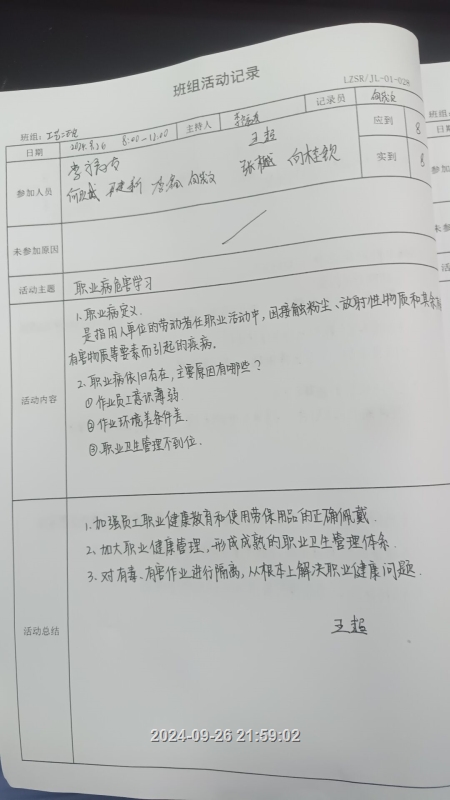 班组活动记录
LZSR/JL-01-028
班组:
日期 8:00-11:00 主持人 记录员
参加人员 王超 应到 8
何 张樾 向桂钦 实到 8
未参加原因
活动主题 职业病危害学习
活动内容 1、职业病定义.
是指用人单位的劳动者在职业活动中,因接触粉尘、放射性物质和其余
有害物质等要素而引起的疾病.
2、职业病依旧存在,主要原因有哪些?
①作业员工意识薄弱.
②作业环境差条件差.
③职业卫生管理不到位.
活动总结 1、加强员工职业健康教育和使用劳保用品的正确佩戴.
2、加大职业健康管理,形成成熟的职业卫生管理体系.
3、对有毒、有害作业进行隔离,从根本上解决职业健康问题.
王超
2024-09-26 21:59:02
班组:
日期
参加